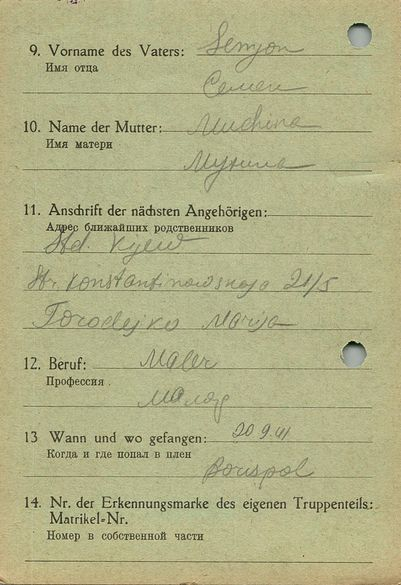 9. Vorname des Vaters: Semjon
Имя отца
Семен
10. Name der Mutter: Muchina
Имя матери
Мухина
11. Anschrift der nächsten Angehörigen:
Адрес ближайших родственников
Std. Kyew
Str. Konstantinowskaja 21/5
Torodejko Marija
12. Beruf: Maler
Профессия
Маляр
13 Wann und wo gefangen: 20.9.41
Когда и где попал в плен
Borispol
14. Nr. der Erkennungsmarke des eigenen Truppenteils:
Matrikel-Nr.
Номер в собственной части